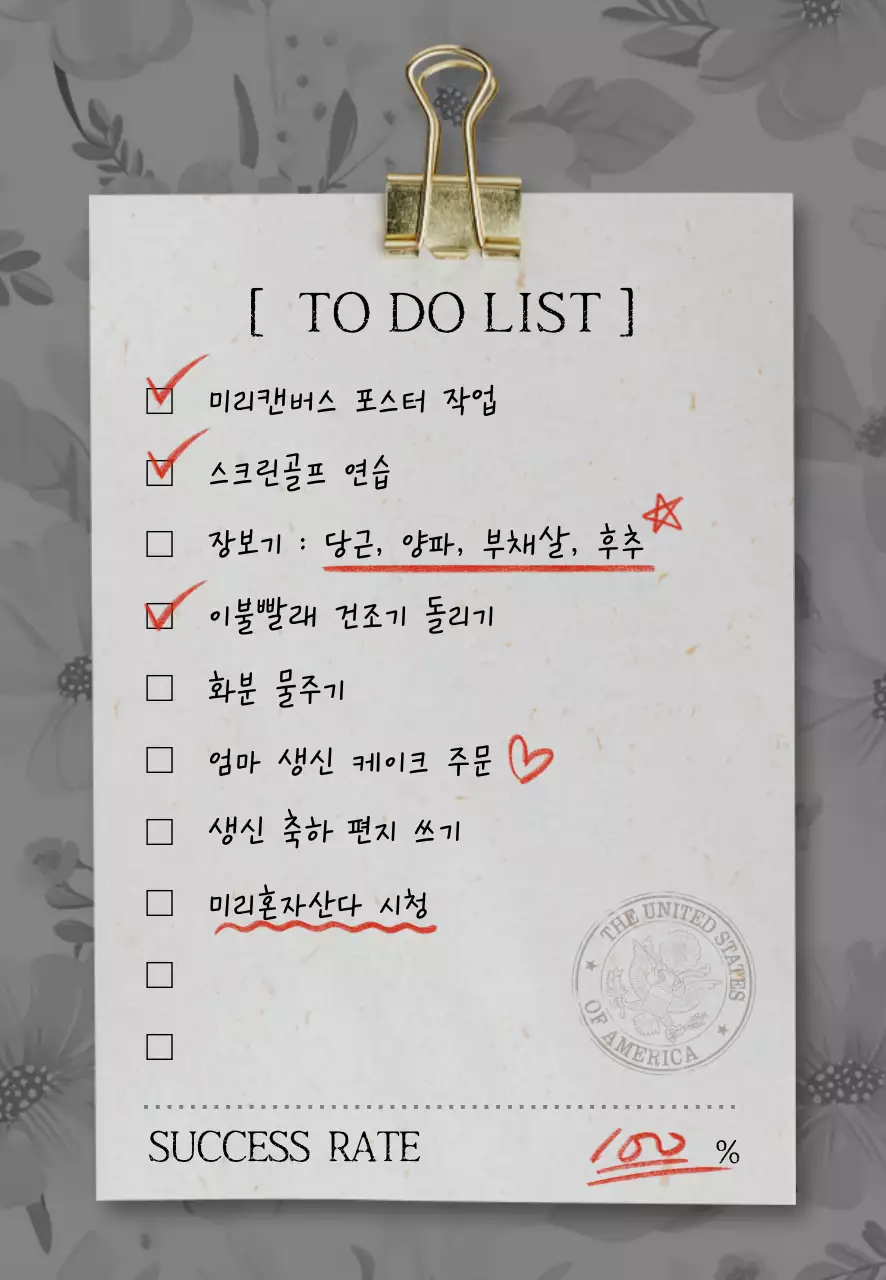 [ TO DO LIST ]
미리캔버스 포스터 작업
스크린골프 연습
장보기 : 당근, 양파, 부채살, 후추
이불빨래 건조기 돌리기
화분 물주기
엄마 생신 케이크 주문
생신 축하 편지 쓰기
미리혼자산다 시청
THE UNITED STATES
OF AMERICA
SUCCESS RATE 100 %